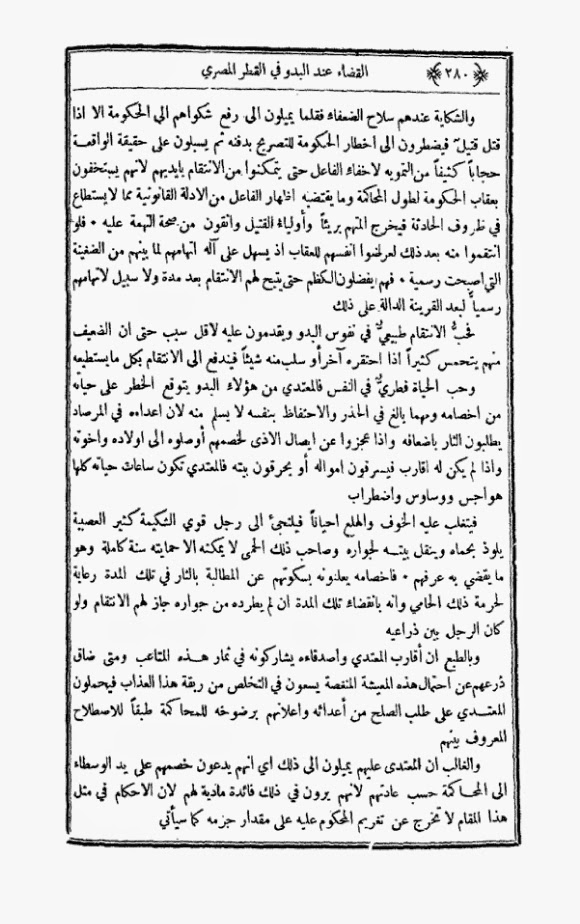 ﴿ ٢٨٠ ﴾ القضاء عند البدو في القطر المصري
والشكاية عندهم سلاح الضعفاء فقلما يميلون الى رفع شكواهم الى الحكومة الا اذا
قتل قتيل فيضطرون الى اخطار الحكومة للتصريح بدفنه ثم يسبلون على حقيقة الواقعة
حجاباً كثيفاً من التمويه لاخفاء الفاعل حتى يتمكنوا من الانتقام بايديهم لانهم يستخفون
بعقاب الحكومة لطول المحاكمة وما يقتضيه اظهار الفاعل من الادلة القانونية مما لا يستطاع
في ظروف الحادثة فيخرج المتهم بريئاً وأولياء القتيل واثقون من صحة التهمة عليه ٠ فلو
انتقموا منه بعد ذلك لعرضوا انفسهم للعقاب اذ يسهل على آله اتهامهم لما بينهم من الضغينة
التي اصبحت رسمية ٠ فهم يفضلون الكظم حتى يتيح لهم الانتقام بعد مدة ولا سبيل لاتهامهم
رسمياً لبعد القرينة الدالة على ذلك
فحبُّ الانتقام طبيعيٌّ في نفوس البدو ويقدمون عليه لاقل سبب حتى ان الضعيف
منهم يتحمس كثيراً اذا احتقره آخر أو سلب منه شيئاً فيندفع الى الانتقام بكل ما يستطيعه
وحب الحياة فطريٌّ في النفس فالمعتدي من هؤلاء البدو يتوقع الخطر على حياته
من اخصامه ومهما يالغ في الحذر والاحتفاظ بنفسه لا يسلم منه لان اعداءه في المرصاد
يطلبون الثار باضعافه واذا عجزوا عن ايصال الاذى لخصمهم أوصلوه الى اولاده واخوته
واذا لم يكن له اقارب فيسرقون امواله أو يحرقون بيته فالمعتدي تكون ساعات حياته كلها
هواجس ووساوس واضطراب
فيتغلب عليه الخوف والهلع احياناً فيلتجئ الى رجل قوي الشكيمة كثير العصبية
يلوذ بحماه وينقل بيته لجواره وصاحب ذلك الحمى لا يمكنه الا حمايته سنة كاملة وهو
ما يقضي به عرفهم ٠ فاخصامه يعلنونه بسكوتهم عن المطالبة بالثار في تلك المدة رعاية
لحرمة ذلك الحامي وانه بانقضاء تلك المدة ان لم يطرده من جواره جاز لهم الانتقام ولو
كان الرجل بين ذراعيه
وبالطبع ان أقارب المعتدي واصدقاءه يشاركونه في ثمار هذه المتاعب ومتى ضاق
ذرعهم عن احتمال هذه المعيشة المنغصة يسعون في التخلص من ربقة هذا العذاب فيحملون
المعتدي على طلب الصلح من أعدائه واعلانهم برضوخه للمحاكمة طبقاً للاصطلاح
المعروف بينهم
والغالب ان المعتدى عليهم يميلون الى ذلك اي انهم يدعون خصمهم على يد الوسطاء
الى المحاكمة حسب عادتهم لانهم يرون في ذلك فائدة مادية لهم لان الاحكام في مثل
هذا المقام لا تخرج عن تغريم المحكوم عليه على مقدار جرمه كما سيأتي